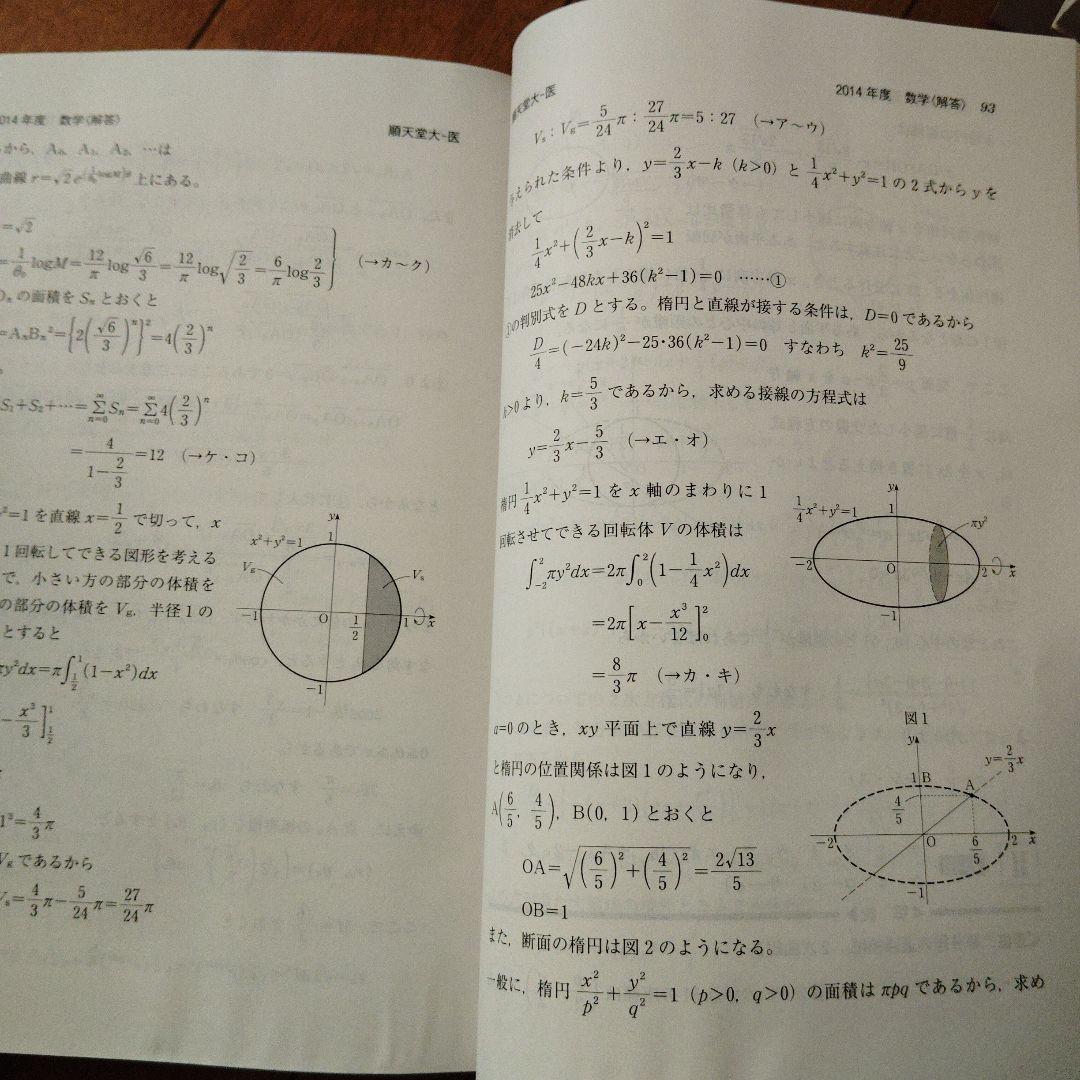 014年度 数学(解答)
順天堂大-医
から, A₀, A₁, A₂, …は
曲線 上にある。
=√2
=1/θ₀ logM=12/π log √6/3=12/π log√(2/3)=6/π log 2/3 (→カ〜ク)
の面積をSₙとおくと
=AₙBₙ²={2(√6/3)ⁿ}²=4(2/3)ⁿ
S₁+S₂+…=∑[n=0,∞]Sₙ=∑[n=0,∞]4(2/3)ⁿ
=4/(1-2/3)=12 (→ケ・コ)
²=1を直線x=1/2で切って, x
1回転してできる図形を考える
で, 小さい方の部分の体積を
の部分の体積をVg, 半径1の
とすると
πy²dx=π∫[1/2,1](1-x²)dx
-x³/3][1/2,1]
1³=4/3π
Vgであるから
Vs=4/3π-5/24π=27/24π
x²+y²=1
y
1
Vg
Vs
-1
O
1/2
1
x
-1
順天堂大-医
2014年度 数学(解答) 93
Vs:Vg=5/24π:27/24π=5:27 (→ア〜ウ)
与えられた条件より, y=2/3x-k (k>0) と 1/4x²+y²=1の2式からyを
消去して
1/4x²+(2/3x-k)²=1
25x²-48kx+36(k²-1)=0 ……①
①の判別式をDとする。楕円と直線が接する条件は, D=0であるから
D/4=(-24k)²-25・36(k²-1)=0 すなわち k²=25/9
k>0より, k=5/3 であるから, 求める接線の方程式は
y=2/3x-5/3 (→エ・オ)
楕円1/4x²+y²=1をx軸のまわりに1
回転させてできる回転体Vの体積は
∫[-2,2]πy²dx=2π∫[0,2](1-1/4x²)dx
=2π[x-x³/12][0,2]
=8/3π (→カ・キ)
1/4x²+y²=1
y
1
πy²
-2
O
2
x
-1
a=0のとき, xy平面上で直線y=2/3x
と楕円の位置関係は図1のようになり,
A(6/5, 4/5), B(0, 1)とおくと
OA=√((6/5)²+(4/5)²)=2√13/5
OB=1
図1
y
y=2/3x
1
B
A
4/5
-2
O
6/5
2
x
-1
また, 断面の楕円は図2のようになる。
一般に, 楕円 x²/p²+y²/q²=1 (p>0, q>0) の面積はπpqであるから, 求め